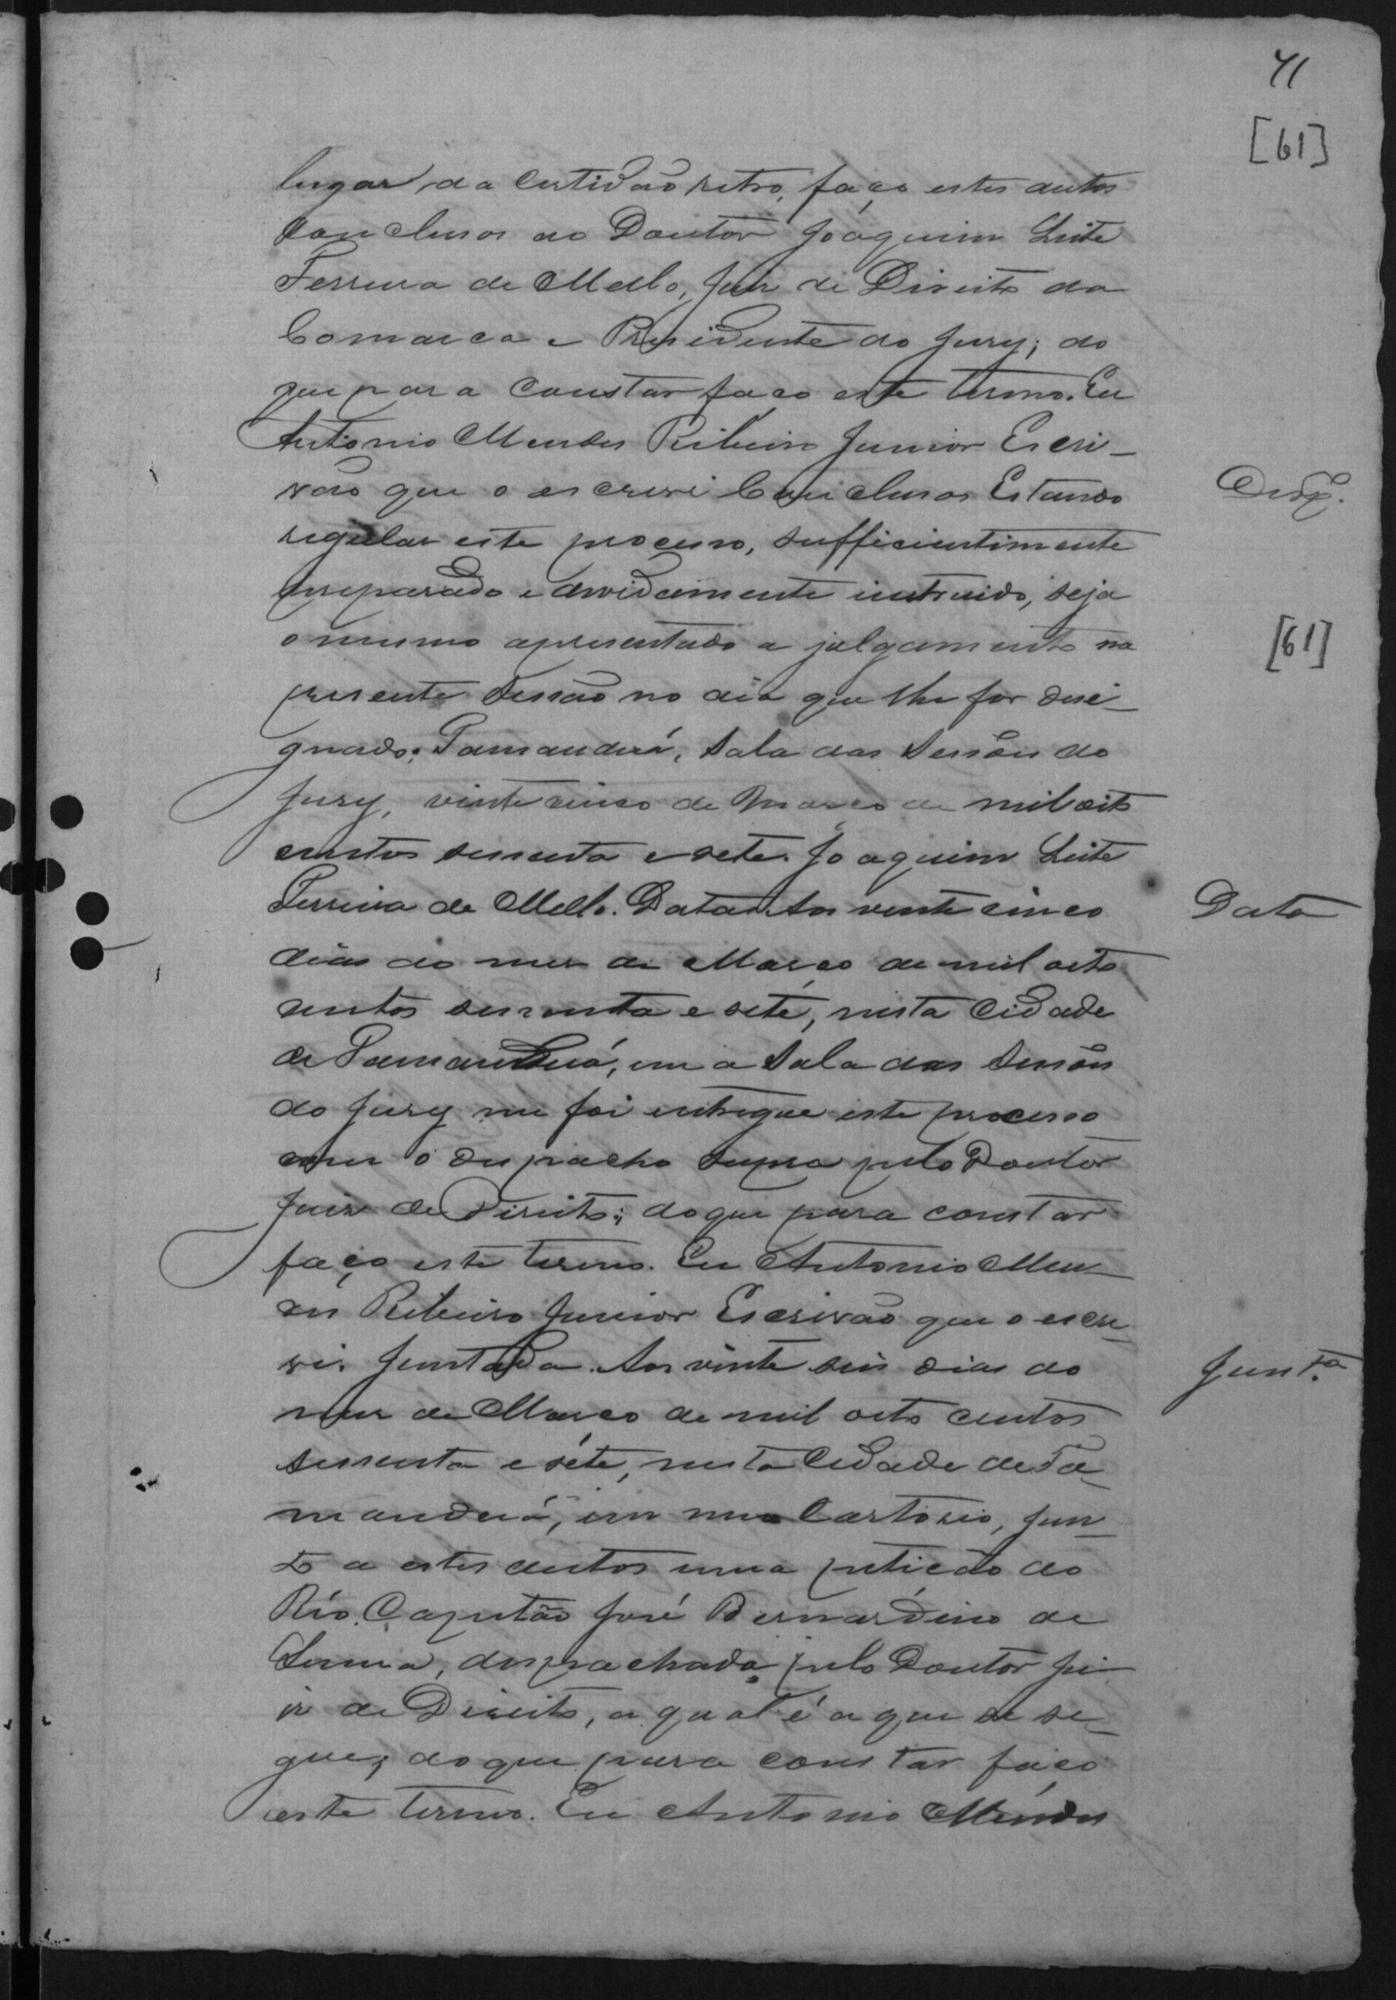 41
[61]
lugar da certidão retro, faço estes autos
conclusos ao Doutor Joaquim Leite
Ferreira de Mello, Juiz de Direito da
Comarca e Presidente do Jury; do
que para constar faço este termo. Eu
Antonio Mendes Ribeiro Junior Escri-
vão que o escrevi Conclusos Estando
Desp.
regular este processo, sufficientimente
preparado e devidamente instruido, seja
o mesmo apresentado a julgamento na
[61]
presente Sessão no dia que lhe for desi-
gnado; Tamanduá, Sala das Sessões do
Jury, vinte cinco de Março de mil oito
centos sessenta e sete. Joaquim Leite
Ferreira de Mello. Data Aos vinte cinco
Data
dias do mez de Março de mil oito
centos sessenta e sete, nesta Cidade
de Tamanduá, em a Sala das Sessões
do Jury me foi entregue este processo
com o despacho supra pelo Doutor
Juiz de Direito; do que para constar
faço este termo. Eu Antonio Men-
des Ribeiro Junior Escrivão que o escre-
vi. Juntada. Aos vinte seis dias do
Junt.ª
mez de Março de mil oito centos
sessenta e sete, nesta Cidade de Ta-
manduá, em meo Cartorio, jun-
to a estes autos uma petição do
Réo Capitão José Bernardino de
despachada pelo Doutor Ju-
iz de Direito, a qual é a que se se-
gue; do que para constar faço
este termo. Eu Antonio Mendes